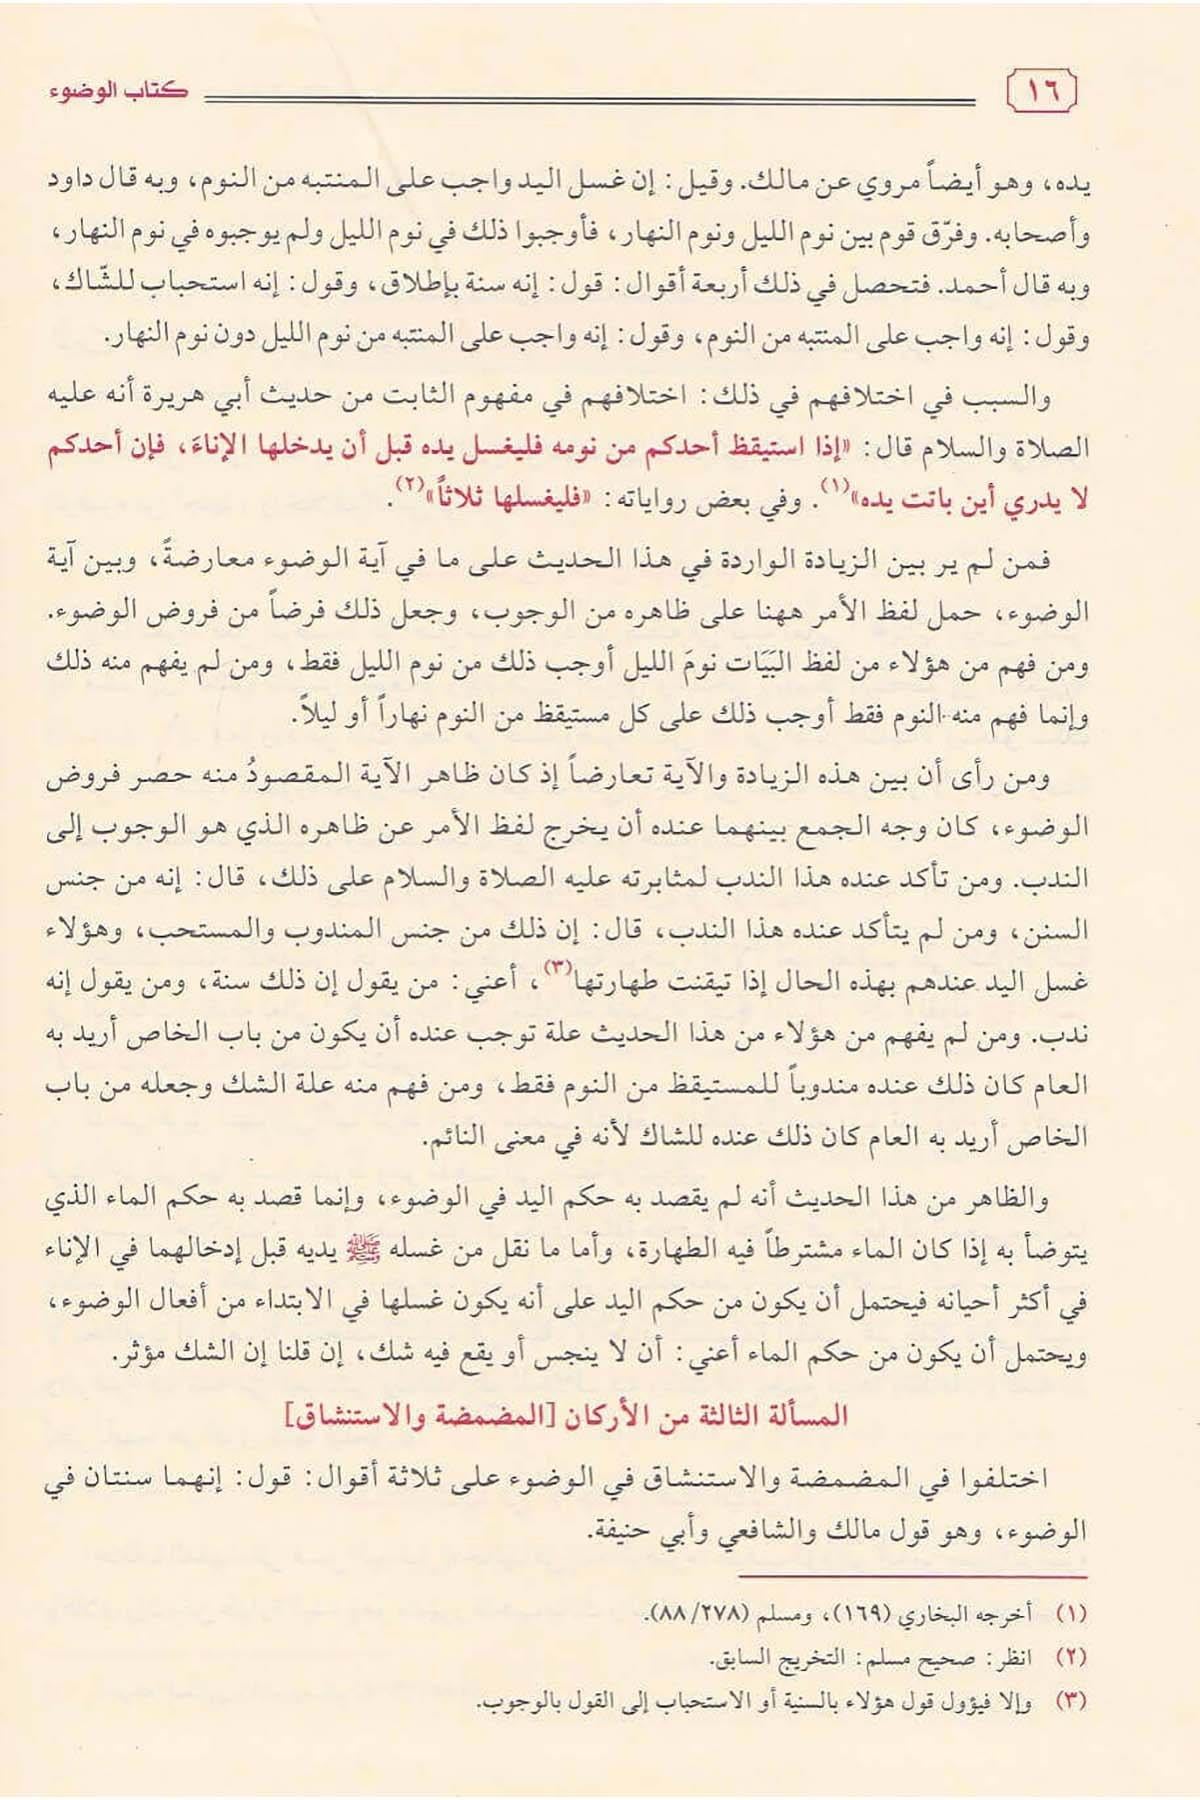 ١٦
كتاب الوضوء
يده، وهو أيضاً مروي عن مالك. وقيل: إن غسل اليد واجب على المنتبه من النوم، وبه قال داود
وأصحابه. وفرّق قوم بين نوم الليل ونوم النهار، فأوجبوا ذلك في نوم الليل ولم يوجبوه في نوم النهار،
وبه قال أحمد. فتحصل في ذلك أربعة أقوال: قول: إنه سنة بإطلاق، وقول: إنه استحباب للشّاك،
وقول: إنه واجب على المنتبه من النوم، وقول: إنه واجب على المنتبه من نوم الليل دون نوم النهار.
والسبب في اختلافهم في ذلك: اختلافهم في مفهوم الثابت من حديث أبي هريرة أنه عليه
الصلاة والسلام قال: «إذا استيقظ أحدكم من نومه فليغسل يده قبل أن يدخلها الإناءَ، فإن أحدكم
لا يدري أين باتت يده»(١). وفي بعض رواياته: «فليغسلها ثلاثاً»(٢).
فمن لم ير بين الزيادة الواردة في هذا الحديث على ما في آية الوضوء معارضةً، وبين آية
الوضوء، حمل لفظ الأمر ههنا على ظاهره من الوجوب، وجعل ذلك فرضاً من فروض الوضوء.
ومن فهم من هؤلاء من لفظ البَيَات نومَ الليل أوجب ذلك من نوم الليل فقط، ومن لم يفهم منه ذلك
وإنما فهم منه النوم فقط أوجب ذلك على كل مستيقظ من النوم نهاراً أو ليلاً.
ومن رأى أن بين هذه الزيادة والآية تعارضاً إذ كان ظاهر الآية المقصودُ منه حصر فروض
الوضوء، كان وجه الجمع بينهما عنده أن يخرج لفظ الأمر عن ظاهره الذي هو الوجوب إلى
الندب. ومن تأكد عنده هذا الندب لمثابرته عليه الصلاة والسلام على ذلك، قال: إنه من جنس
السنن، ومن لم يتأكد عنده هذا الندب، قال: إن ذلك من جنس المندوب والمستحب، وهؤلاء
غسل اليد عندهم بهذه الحال إذا تيقنت طهارتها(٣)، أعني: من يقول إن ذلك سنة، ومن يقول إنه
ندب. ومن لم يفهم من هؤلاء من هذا الحديث علة توجب عنده أن يكون من باب الخاص أريد به
العام كان ذلك عنده مندوباً للمستيقظ من النوم فقط، ومن فهم منه علة الشك وجعله من باب
الخاص أريد به العام كان ذلك عنده للشاك لأنه في معنى النائم.
والظاهر من هذا الحديث أنه لم يقصد به حكم اليد في الوضوء، وإنما قصد به حكم الماء الذي
يتوضأ به إذا كان الماء مشترطاً فيه الطهارة، وأما ما نقل من غسله ﷺ يديه قبل إدخالهما في الإناء
في أكثر أحيانه فيحتمل أن يكون من حكم اليد على أنه يكون غسلها في الابتداء من أفعال الوضوء،
ويحتمل أن يكون من حكم الماء أعني: أن لا ينجس أو يقع فيه شك، إن قلنا إن الشك مؤثر.
المسألة الثالثة من الأركان [المضمضة والاستنشاق]
اختلفوا في المضمضة والاستنشاق في الوضوء على ثلاثة أقوال: قول: إنهما سنتان في
الوضوء، وهو قول مالك والشافعي وأبي حنيفة.
(١) أخرجه البخاري (١٦٩)، ومسلم (٨٨/٢٧٨).
(٢) انظر: صحيح مسلم: التخريج السابق.
(٣) وإلا فيؤول قول هؤلاء بالسنية أو الاستحباب إلى القول بالوجوب.